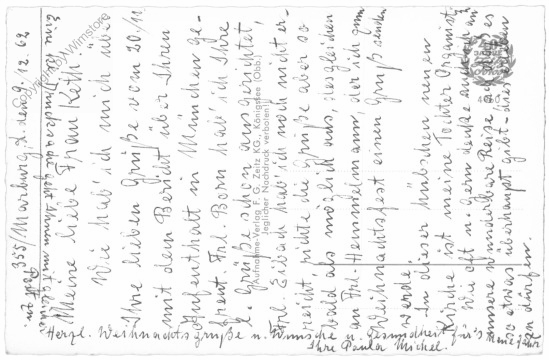 355/Marburg, L. den 9.12.62
Meine liebe Frau Keth!
Wie hab ich mich über
Ihre lieben Grüße vom 20/11.
mit dem Bericht über Ihren
Aufenthalt in München ge-
freut. Frl. Born hab ich Ihre
l. Grüße schon ausgerichtet,
Frl. Eibach hab ich noch nicht er-
reicht, richte die Grüße aber so
bald als möglich aus, desgleichen
an Frl. Hemmelmann, der ich zum
Weihnachtsfest einen Gruß senden
werde.
In dieser hübschen neuen
Kirche ist meine Tochter Organist.
Wie oft u. gern denke auch ich an
unsere wunderbare Reise, daß es
so etwas überhaupt gibt - hier
en dürfen.
Herzl. Weihnachtsgrüße u. Wünsche u. Gesundheit für's neue Jahr
Ihre Paula Michel.
Aufnahme-Verlag F. G. Zeitz KG., Königssee (Obb.)
Jeglicher Nachdruck verboten!
Copyright by Wimstore